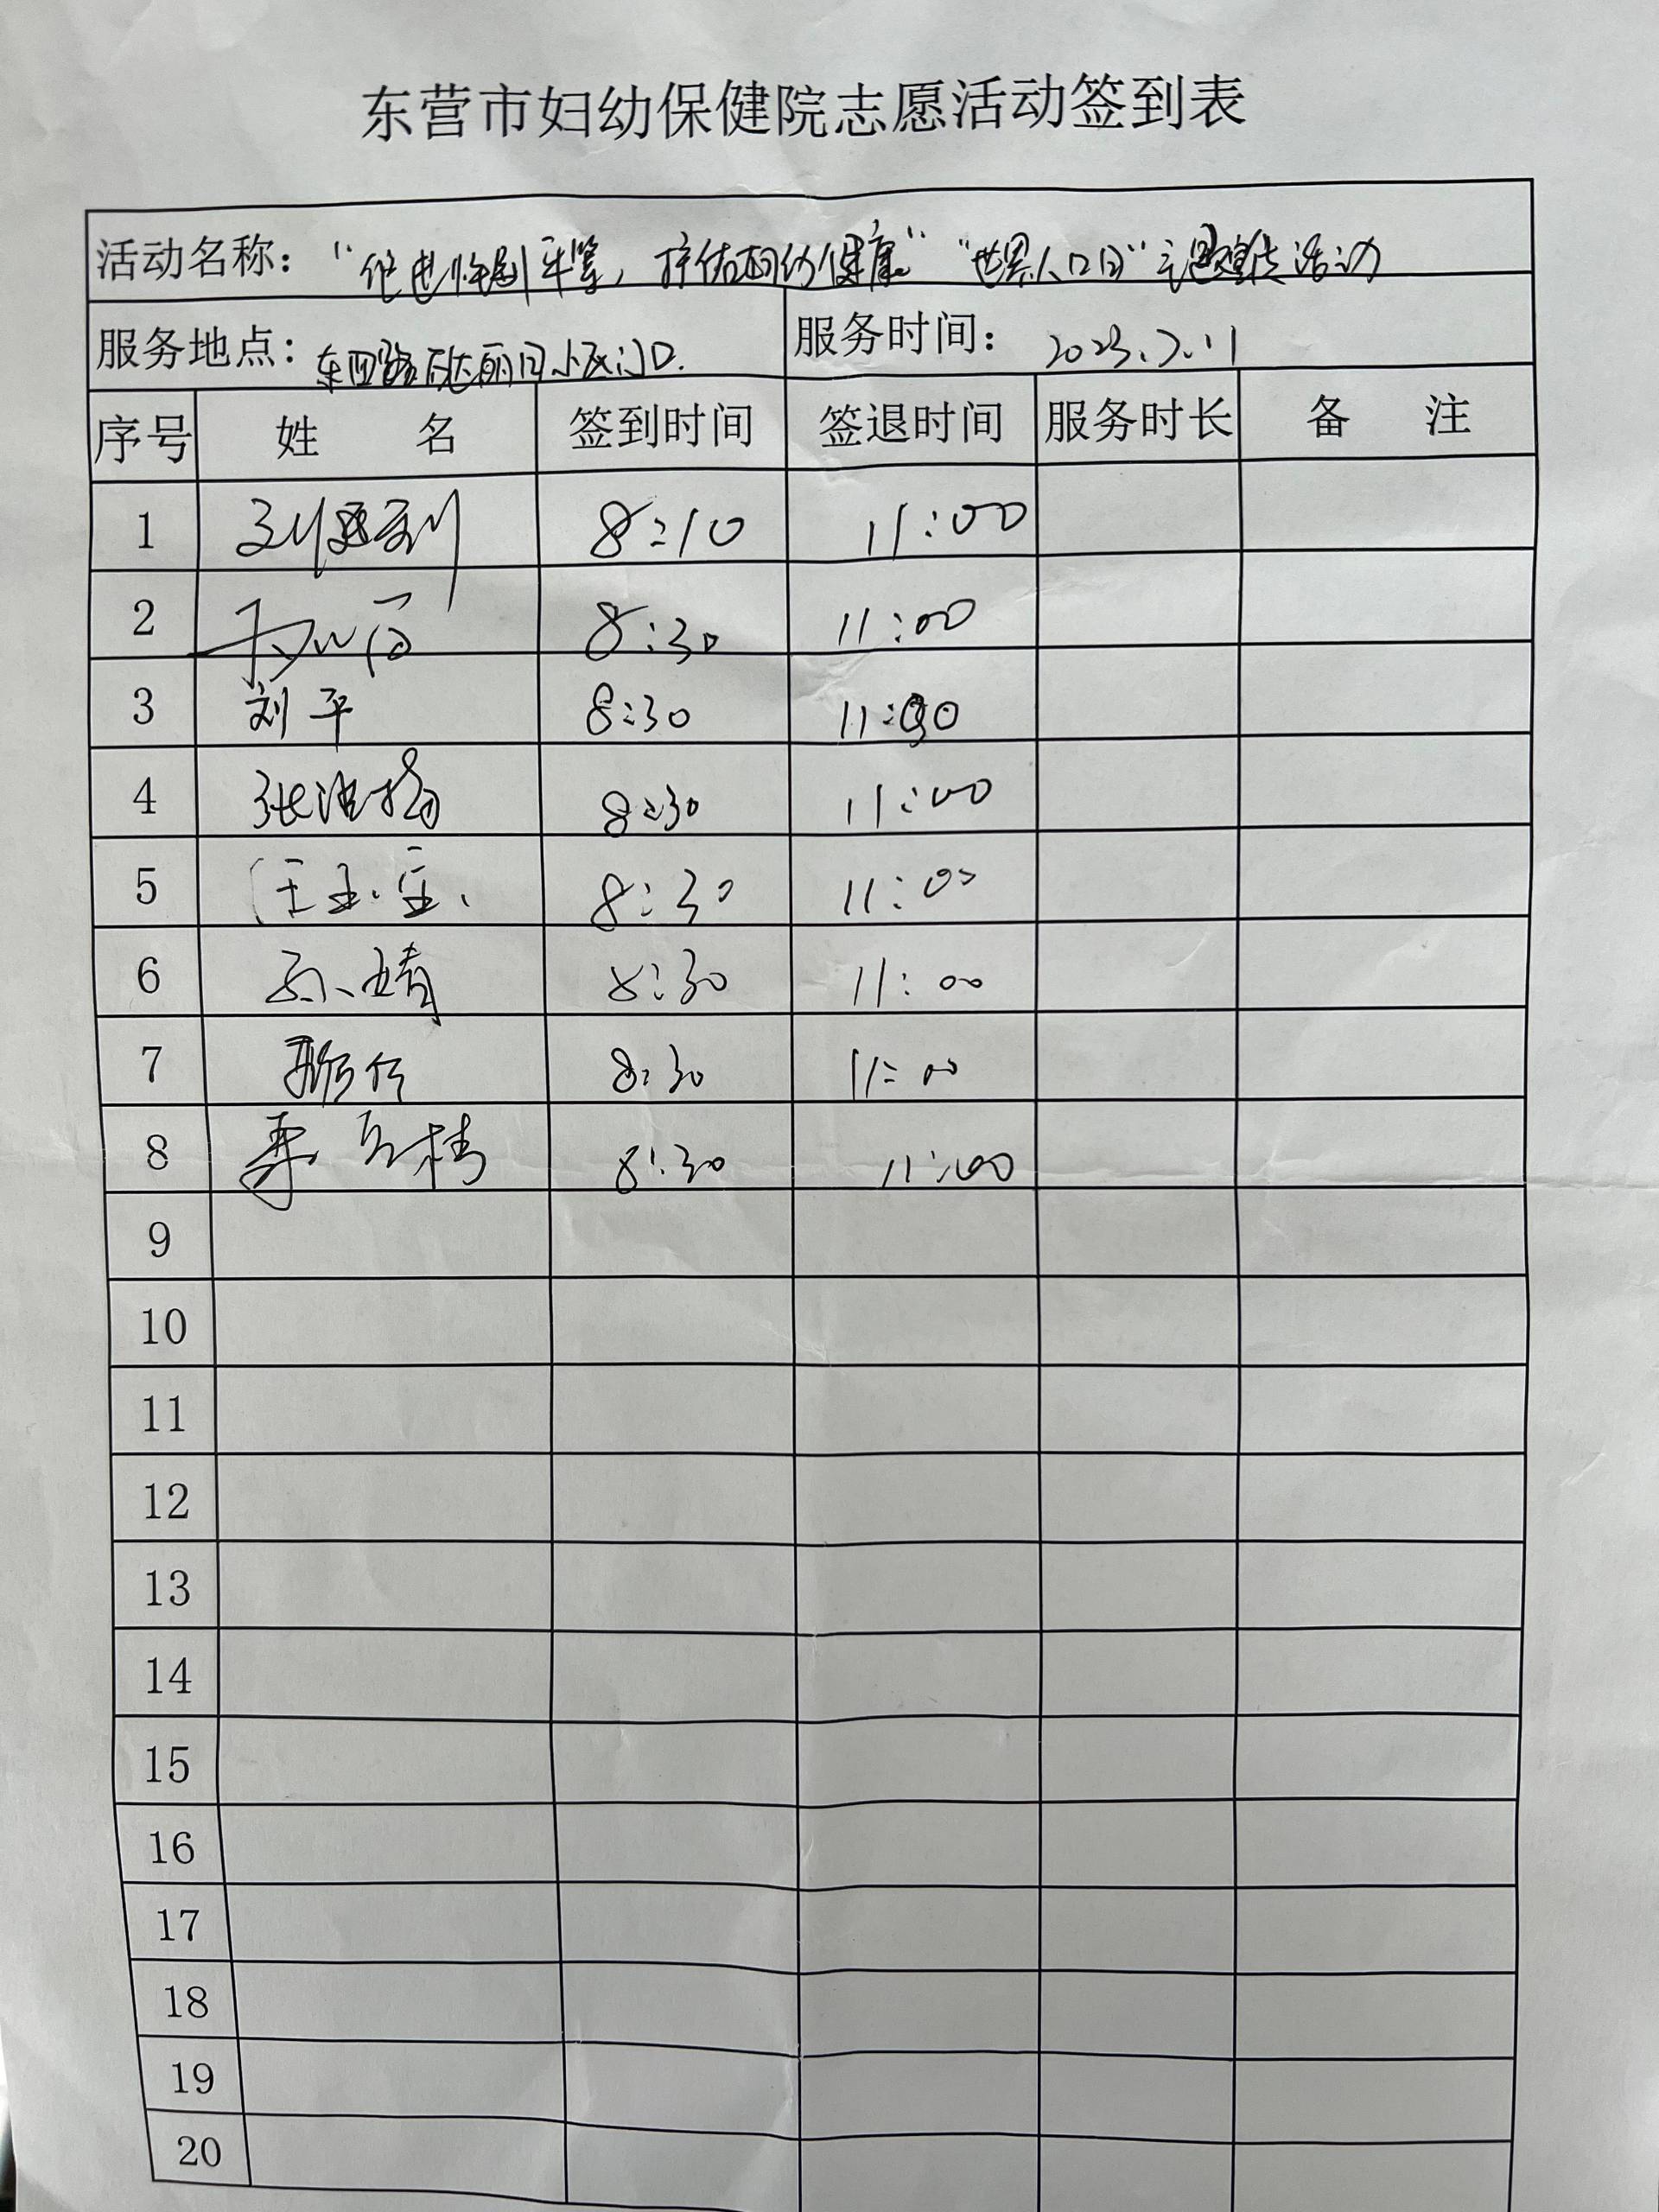 东营市妇幼保健院志愿活动签到表
活动名称：“ 性别平等，护佑妇幼健康”“世界人口日”主题宣传活动
服务地点：东四路 小区门口. 服务时间：2023.7.11
序号 姓 名 签到时间 签退时间 服务时长 备 注
1 8:10 11:00
2 8:30 11:00
3 刘平 8:30 11:00
4 张 8:30 11:00
5 8:30 11:00
6 孙婧 8:30 11:00
7 8:30 11:00
8 8:30 11:00
9
10
11
12
13
14
15
16
17
18
19
20